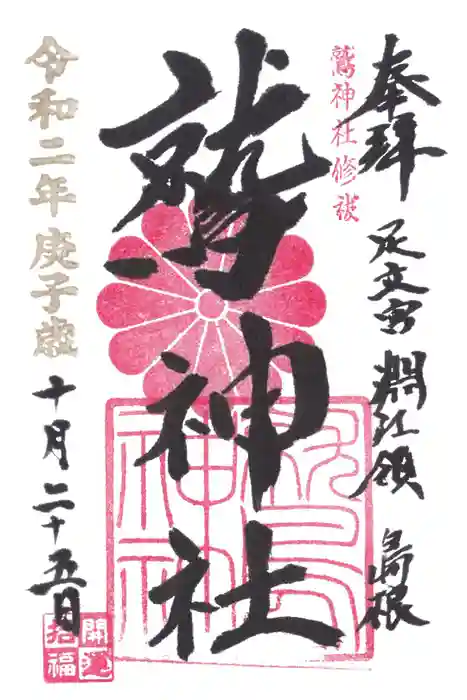 奉拝
足立宮 渕江領 島根
鷲神社修祓
鷲神社
鷲神社
令和二年庚子歳
十月二十五日
開運
招福